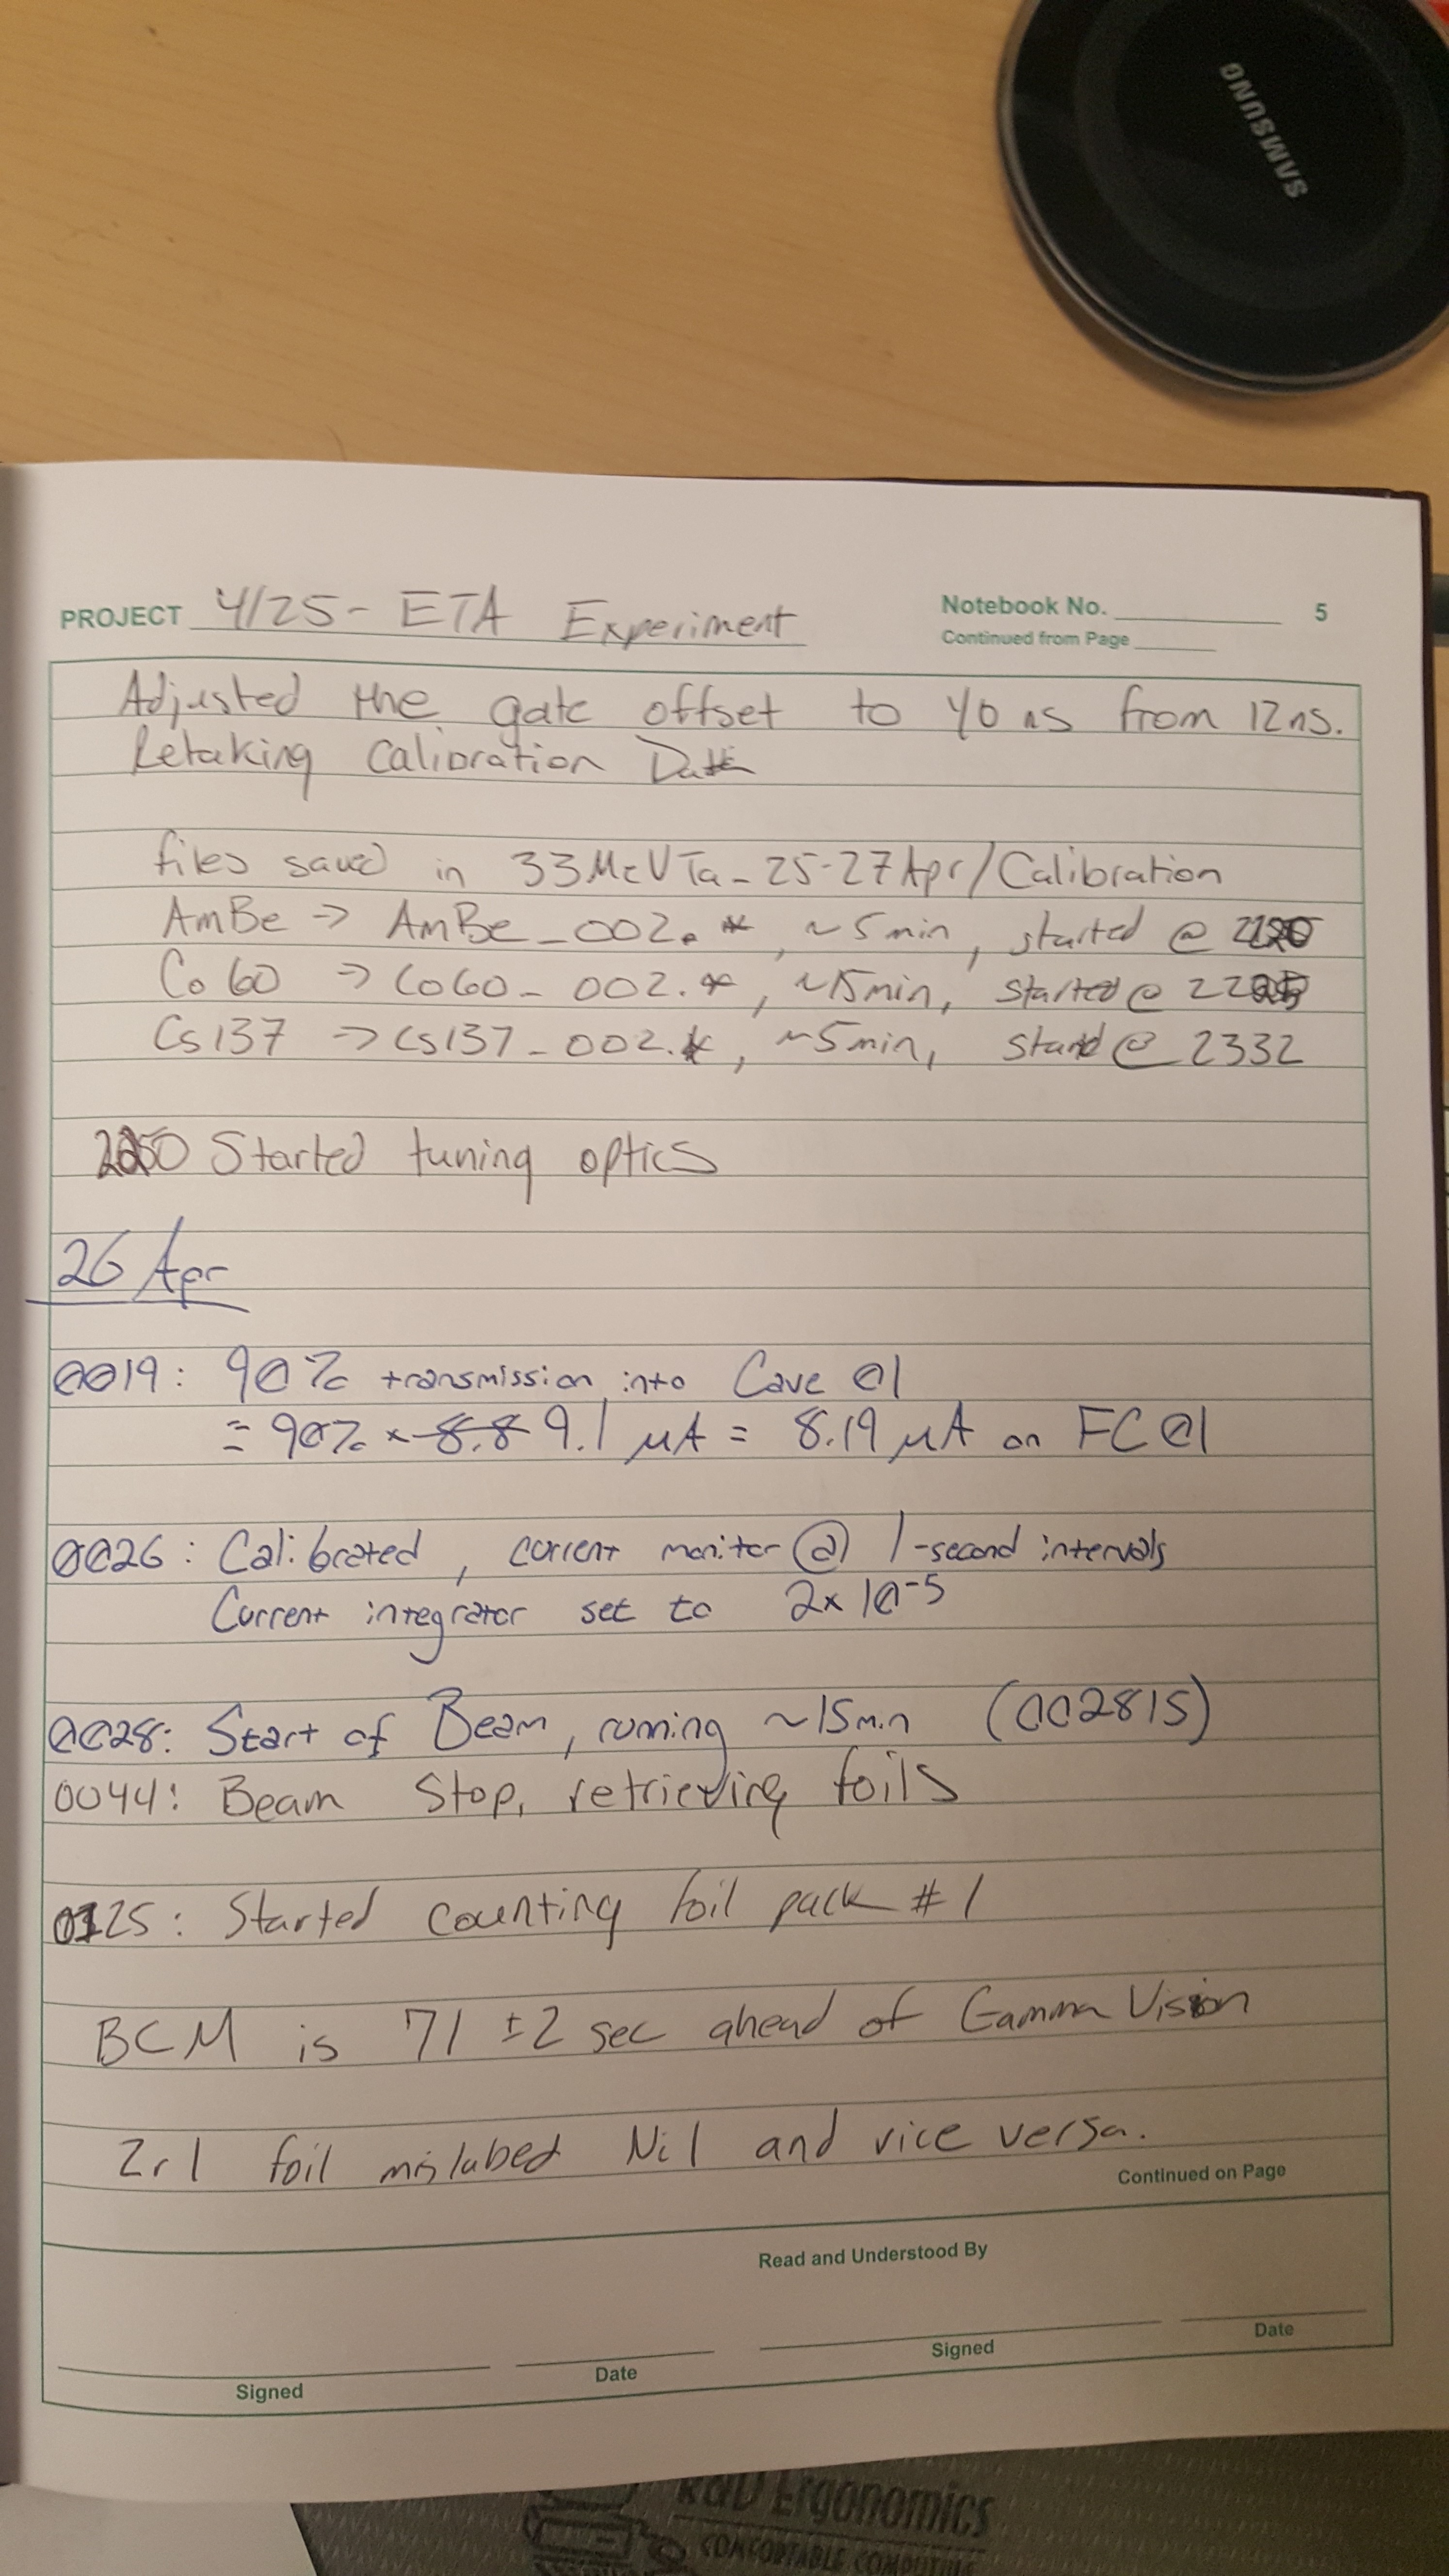 SAMSUNG
PROJECT 4/25 - ETA Experiment
Notebook No. 5
Continued from Page
Adjusted the gate offset to 40 ns from 12ns.
Retaking Calibration Data
files saved in 33MeVTa_25-27Apr/Calibration
AmBe -> AmBe_002.*, ~5min, started @
Co60 -> Co60_002.*, ~15min, started @
Cs137 -> Cs137_002.*, ~5min, started @ 2332
Started tuning optics
26 Apr
0019: 90% transmission into Cave 01
= 90% × 8.8 9.1 μA = 8.19 μA on FC01
0026: Calibrated, current monitor @ 1-second intervals
Current integrator set to 2×10⁻⁵
0028: Start of Beam, running ~15min (002815)
0044: Beam Stop, retrieving foils
0125: Started counting foil pack #1
BCM is 71 ±2 sec ahead of Gamma Vision
Zr1 foil mislabed Ni1 and vice versa.
Continued on Page
Read and Understood By
Signed
Date
Signed
Date
R&D Ergonomics
COMFORTABLE COMPUTING